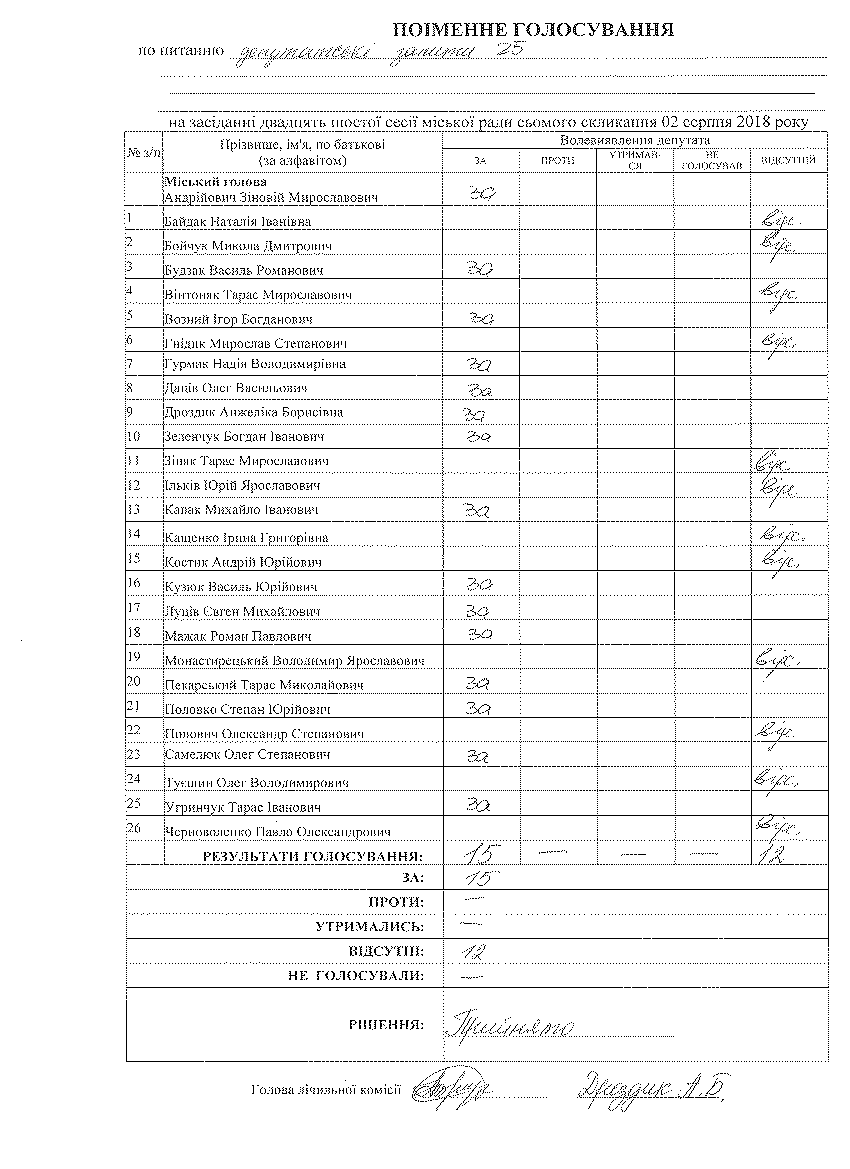 ПОІМЕННЕ ГОЛОСУВАННЯ
по питанню депутатські запити 25
на засіданні двадцять шостої сесії міської ради сьомого скликання 02 серпня 2018 року
№ з/п Прізвище, ім'я, по батькові (за алфавітом) Волевиявлення депутата
ЗА ПРОТИ УТРИМАВ-СЯ НЕ ГОЛОСУВАВ ВІДСУТНІЙ
Міський голова
Андрійович Зіновій Мирославович за
1 Байдак Наталія Іванівна відс.
2 Бойчук Микола Дмитрович відс.
3 Будзак Василь Романович за
4 Вінтоняк Тарас Мирославович відс.
5 Возний Ігор Богданович за
6 Гнідик Мирослав Степанович відс.
7 Гурмак Надія Володимирівна за
8 Даців Олег Васильович за
9 Дроздик Анжеліка Борисівна за
10 Зеленчук Богдан Іванович за
11 Зіняк Тарас Мирославович відс.
12 Ільків Юрій Ярославович відс
13 Капак Михайло Іванович за
14 Кащенко Ірина Григорівна відс.
15 Костик Андрій Юрійович відс.
16 Кузюк Василь Юрійович за
17 Луців Євген Михайлович за
18 Мажак Роман Павлович за
19 Монастирецький Володимир Ярославович відс.
20 Пекарський Тарас Миколайович за
21 Половко Степан Юрійович за
22 Попович Олександр Степанович відс.
23 Самелюк Олег Степанович за
24 Туєшин Олег Володимирович відс.
25 Угринчук Тарас Іванович за
26 Черноволенко Павло Олександрович відс.
РЕЗУЛЬТАТИ ГОЛОСУВАННЯ: 15 — — — 12
ЗА: 15
ПРОТИ: —
УТРИМАЛИСЬ: —
ВІДСУТНІ: 12
НЕ ГОЛОСУВАЛИ: —
РІШЕННЯ: Прийнято
Голова лічильної комісії Дроздик А.Б.